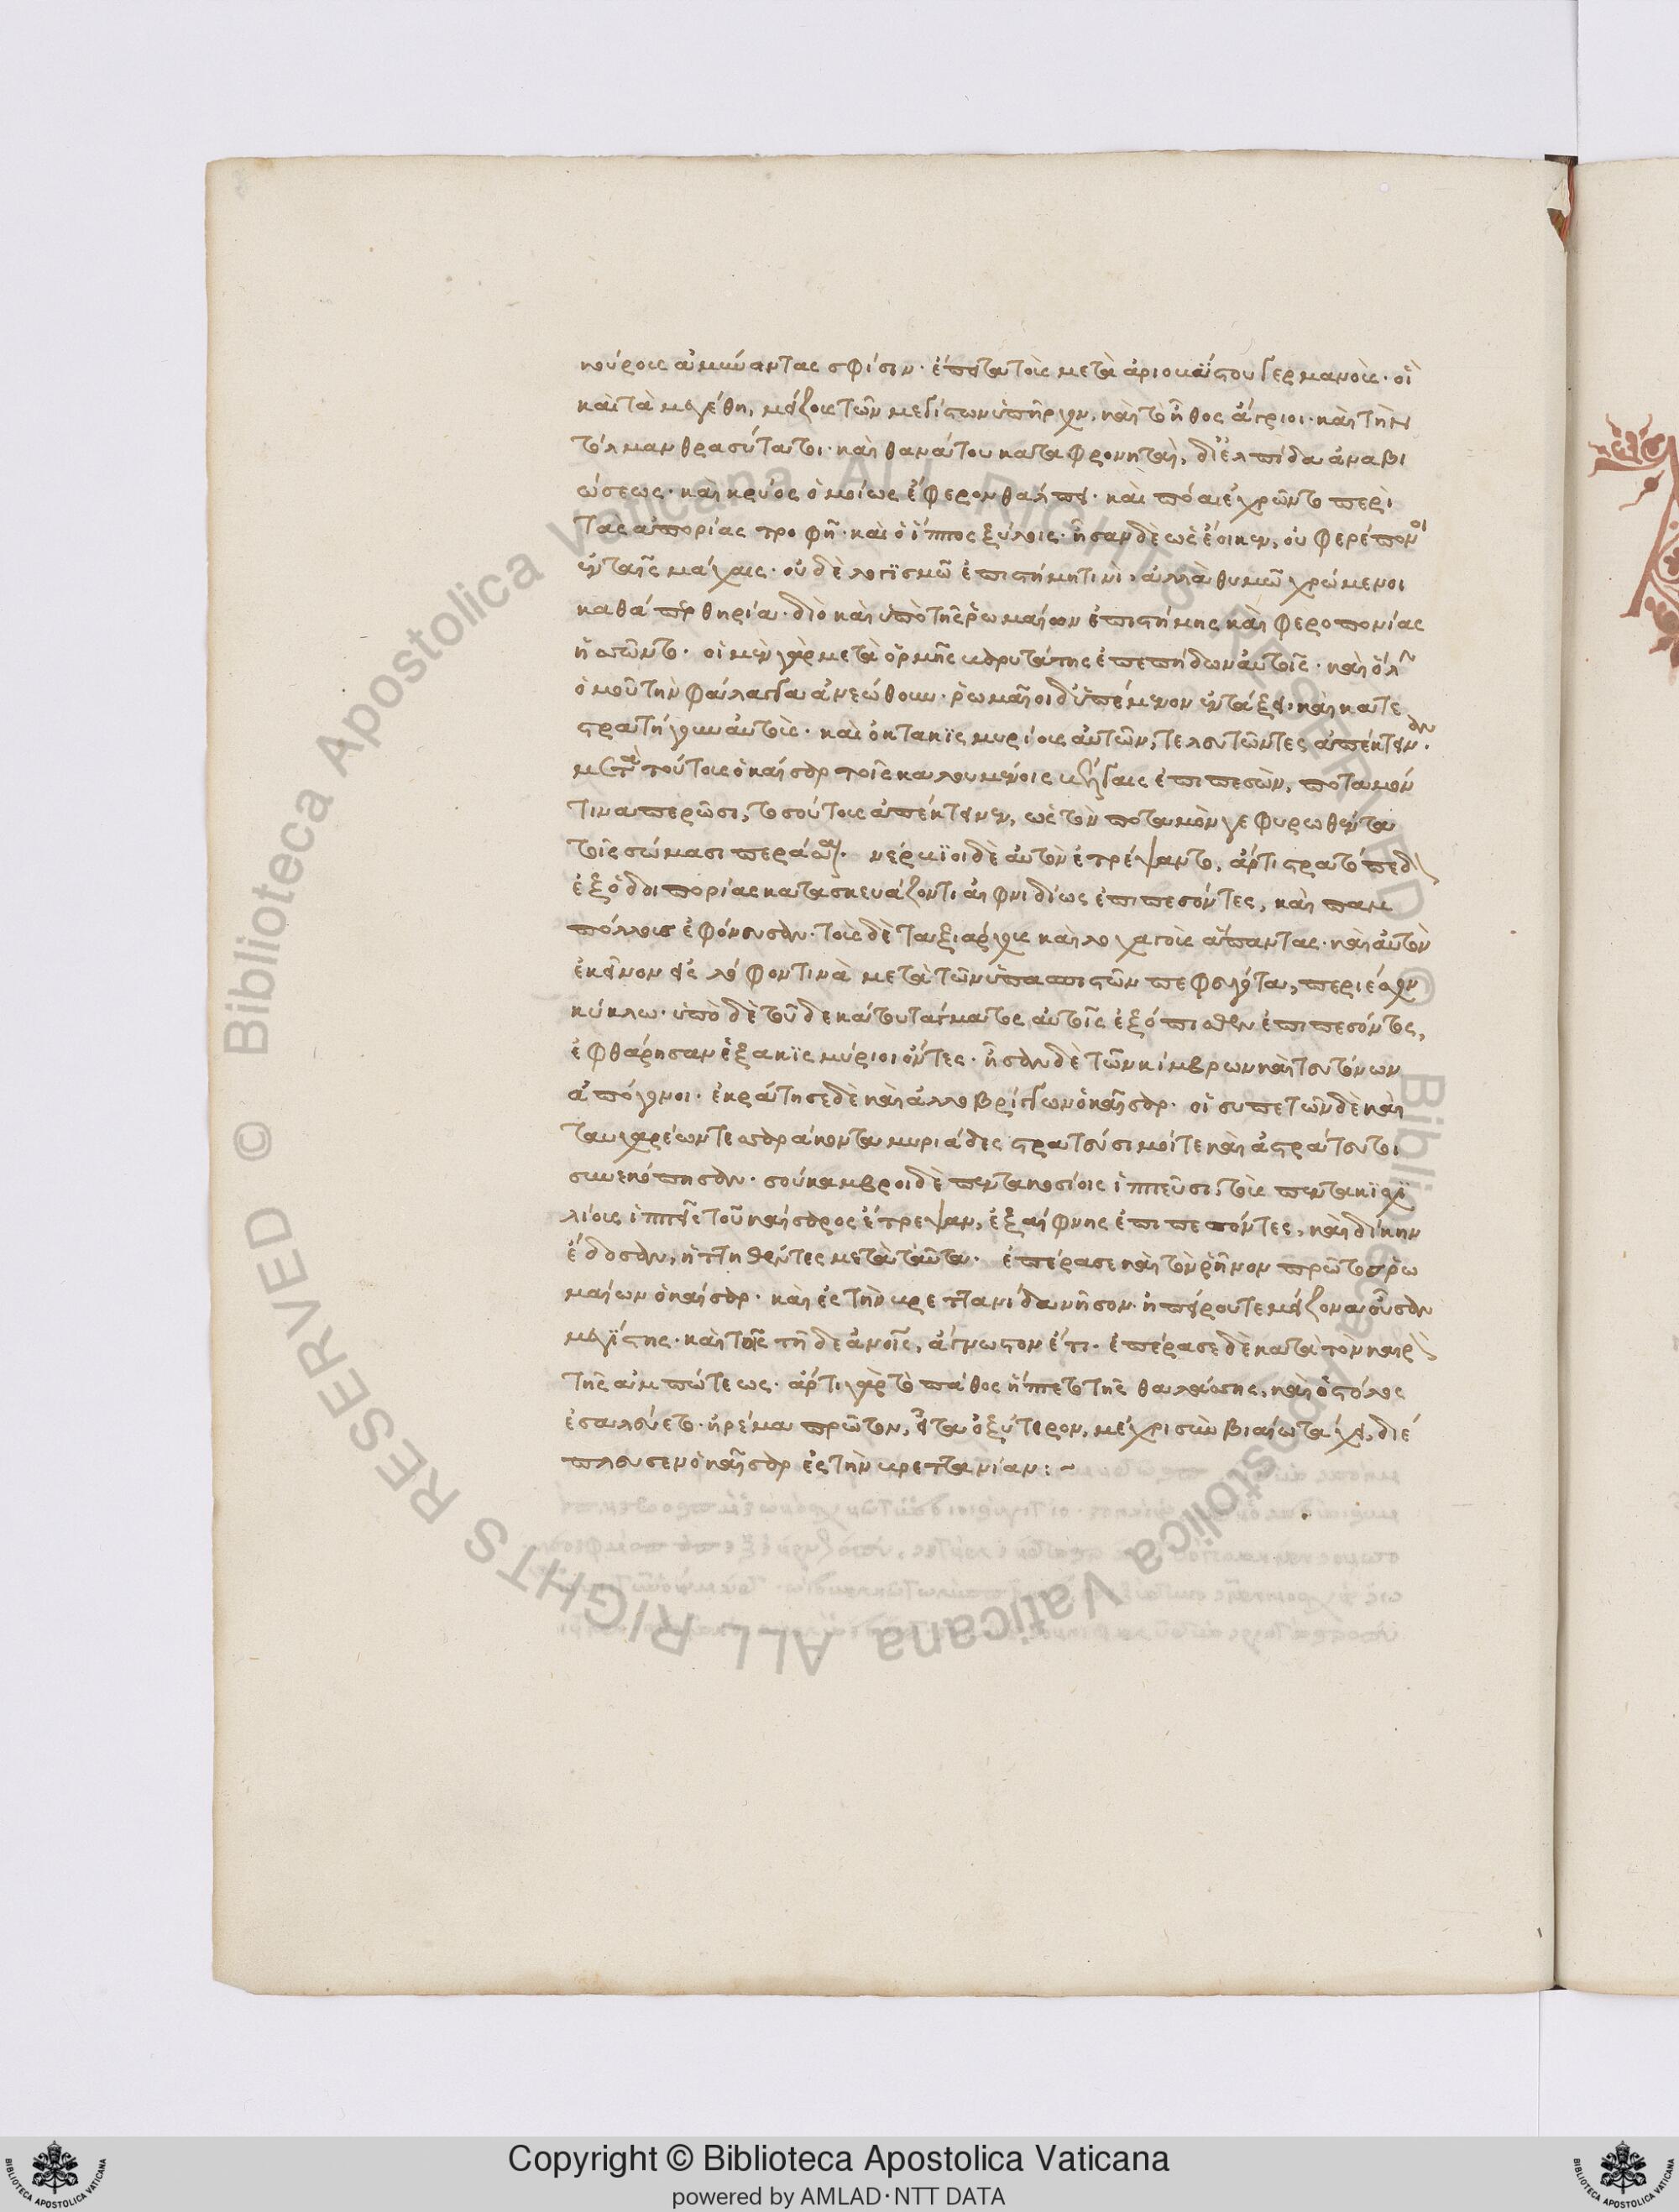 κούρους ἀμύναντας σφίσιν· ἔπειτα τοὺς μετὰ ἀριουΐστου γερμανοὺς· οἳ
καὶ τὰ μεγέθη, μείζους τῶν μεγίστων ὑπῆρχον. καὶ τὸ ἦθος ἄγριοι· καὶ τὴν
τόλμαν θρασύτατοι· καὶ θανάτου καταφρονηταὶ, δι' ἐλπίδα ἀναβι
ώσεως· καὶ κρύος ὁμοίως ἔφερον θάλπει· καὶ πόα ἐχρῶντο περὶ
τὰς ἀπορίας τροφῆ· καὶ ὁ ἵππος ξύλοις· ἦσαν δὲ ὡς ἔοικεν, οὐ φερέπονοι
ἐν ταῖς μάχαις· οὐδὲ λογϊσμῶ ἐπιστήμη τινὶ, ἀλλὰ θυμῶ χρώμενοι
καθάπερ θηρία· διὸ καὶ ὑπὸ τῆς ῥωμαίων ἐπιστήμης καὶ φεροπονίας
ἡσσῶντο· οἱ μὲν γὰρ μετὰ ὁρμῆς βαρυτάτης ἐπεπήδων αὐτοῖς· καὶ ὅλην
ὁμοῦ τὴν φάλαγγα ἀνεώθουν· ῥωμαῖοι δ' ὑπέμενον ἐν τάξει· καὶ κατε
στρατήγουν αὐτοὺς· καὶ ὀκτακϊς μυρίους αὐτῶν, τελευτῶντες ἀπέκτειναν·
μετὰ τούτους ὁ καῖσαρ τοῖς καλουμένοις βέλγαις ἐπιπεσὼν, ποταμόν
τινα περῶσι, τοσούτους ἀπέκτεινεν, ὡς τὸν ποταμὸν γεφυρωθέντα
τοῖς σώμασι περᾶσαι· νέρβϊοι δὲ αὐτὸν ἐτρέψαντο, ἄρτι στρατόπεδον
ἐξ ὁδοιπορίας κατασκευάζοντι αἰφνιδίως ἐπιπεσόντες, καὶ παμ
πόλλους ἐφόνευσαν· τοὺς δὲ ταξιάρχους καὶ λοχαγοὺς ἅπαντας· καὶ αὐτὸν
ἐκεῖνον εἰς λόφον τινὰ μετὰ τῶν ὑπασπιστῶν πεφευγότα, περιέσχον
κύκλω· ὑπὸ δὲ τοῦ δεκάτου τάγματος αὐτοῖς ἐξόπισθεν ἐπιπεσόντος,
ἐφθάρησαν ἑξακϊς μύριοι ὄντες· ἦσαν δὲ τῶν κίμβρων καὶ τευτόνων
ἀπόγονοι· ἐκράτησε δὲ καὶ ἀλλοβρίγων ὁ καῖσαρ· οἰσυπετῶν δὲ καὶ
ταγχαρέων τεσσαράκοντα μυριάδες στρατεύσιμοί τε καὶ ἀστράτευτοι
συνεκόπησαν· σούκαμβροι δὲ πεντακοσίοις ἱππεῦσι, τοὺς πεντακϊσχϊ
λίους ἱππεῖς τοῦ καίσαρος ἔτρεψαν, ἐξαίφνης ἐπιπεσόντες, καὶ δίκην
ἔδοσαν, ἡττηθέντες μετὰ ταῦτα· ἐπέρασε καὶ τὸν ῥῆνον πρῶτος ῥω
μαίων ὁ καῖσαρ· καὶ ἐς τὴν βρεττανίδα νῆσον ἠπείρου τε μείζονα οὖσαν
μεγίστης· καὶ τοῖς τῆδε ἀνοῖς, ἄγνωστον ἔτι· ἐπέρασε δὲ κατὰ τὸν καιρὸν
τῆς ἀμπώτεως· ἄρτι γὰρ τὸ πάθος ἥπτετο τῆς θαλάσσης, καὶ ὁ στόλος
ἐσαλεύετο· ἠρέμα πρῶτον, εἶτα ὀξύτερον, μέχρι σὺν βιαίω τάχει, διέ
πλευσεν ὁ καῖσαρ ἐς τὴν βρεττανίαν:~
© Biblioteca Apostolica Vaticana ALL RIGHTS RESERVED
© Biblioteca Apostolica Vaticana ALL RIGHTS RESERVED
Copyright © Biblioteca Apostolica Vaticana
powered by AMLAD·NTT DATA
BIBLIOTECA APOSTOLICA VATICANA
BIBLIOTECA APOSTOLICA VATICANA